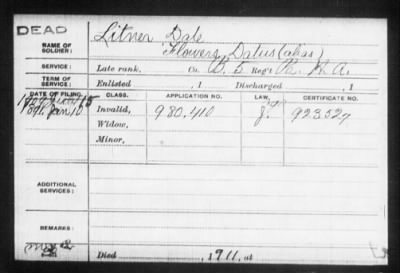 DEAD
NAME OF SOLDIER: Litner Dale
Flowers, Datus (alias)
SERVICE: Late rank, Co. B. 5 Reg't Pa. H. A.
TERM OF SERVICE: Enlisted , 1 Discharged , 1
DATE OF FILING. CLASS. APPLICATION NO. LAW. CERTIFICATE NO.
Invalid, 980.410 923.527
Widow,
Minor,
ADDITIONAL SERVICES:
REMARKS:
Died , 1911, at